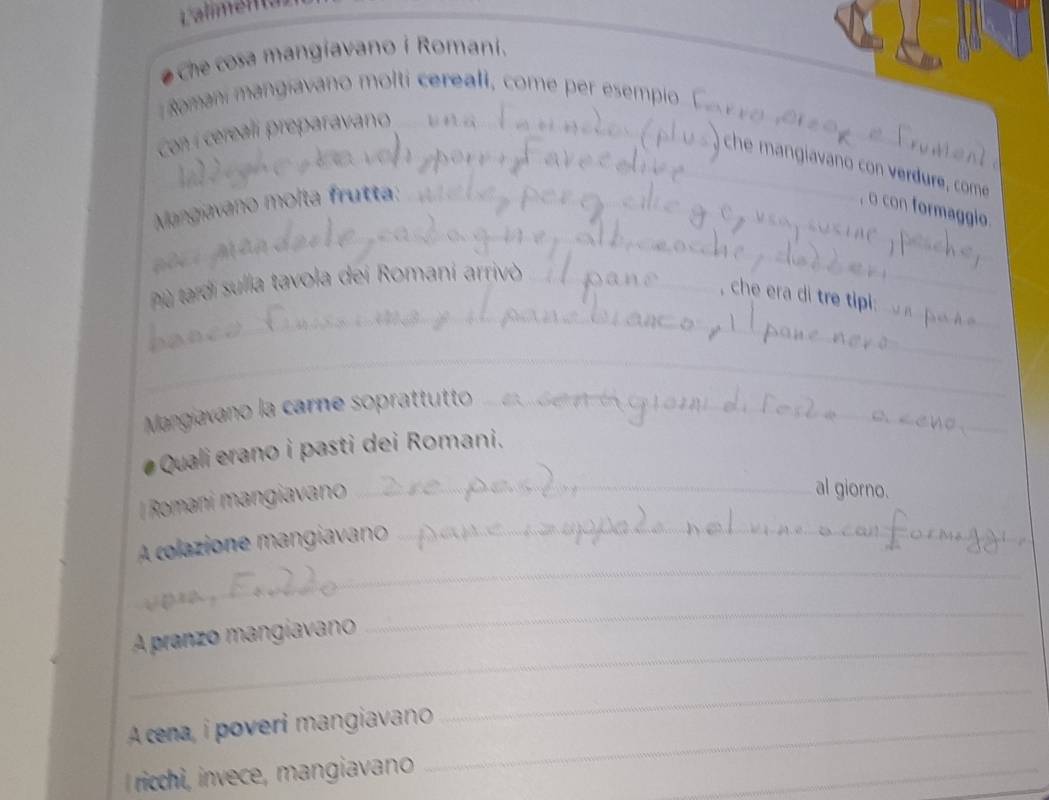 Che cosa mangiavano i Romani.
I Romani mangiavano molti cereali, come per esempio Farro, orzo e frument
Con i cereali preparavano una (plus) che mangiavano con verdure, come
cavoli, porri, fave e olive , o con formaggio.
Mangiavano molta frutta: mele, pere, ciliege, uva, susine, pesche,
mandorle, castagne, albicocche, datteri
Più tardi sulla tavola dei Romani arrivò il pane , che era di tre tipi: un pane
bianco finissimo, il pane bianco, il pane nero
Mangiavano la carne soprattutto giorni di festa a cena.
Quali erano i pasti dei Romani.
I Romani mangiavano tre pasti al giorno.
A colazione mangiavano pane inzuppato nel vino o con formaggi,
uova, frutta
A pranzo mangiavano
A cena, i poveri mangiavano
I ricchi, invece, mangiavano